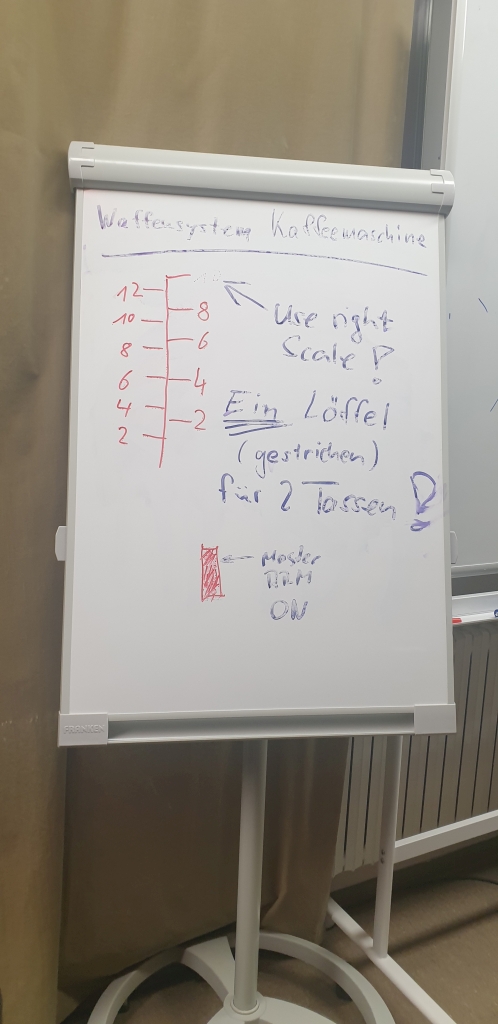 Waffensystem Kaffeemaschine
12
10
8
6
4
2
8
6
4
2
Use right
Scale!
Ein Löffel
(gestrichen)
für 2 Tassen!
Master
ARM
ON
FRANKEN